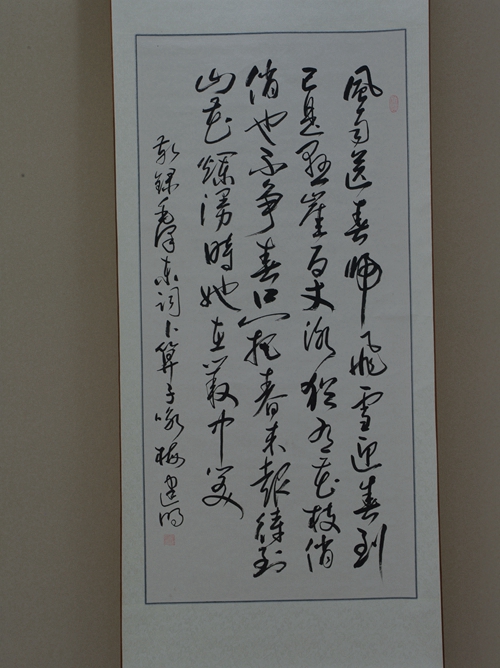 風雨送春归飛雪迎春到
已是悬崖百丈冰猶有花枝俏
俏也不争春只把春来報待到
山花爛漫時她在叢中笑
敬録毛澤东词卜算子咏梅 建明